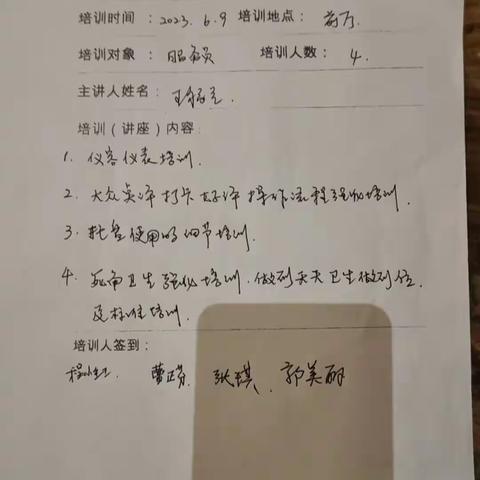 培训时间：2023.6.9 培训地点：前厅.
培训对象：服务员 培训人数：4.
主讲人姓名：王
培训（讲座）内容：
1. 仪容仪表培训.
2. 大众点评打卡好评操作流程强化培训.
3. 托盘使用的细节培训.
4. 死角卫生强化培训.做到天天卫生做到位.
及标准培训.
培训人签到：
程 曹 张琪. 郭美丽